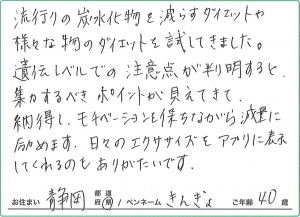 流行りの炭水化物を減らすダイエットや
様々な物のダイエットを試してきました。
遺伝レベルでの注意点が判明すると、
集力するべきポイントが見えてきて
納得し、モチベーションを保ちながら減量に
励めます。日々のエクササイズをアプリに表示
してくれるのもありがたいです。
お住まい 静岡 都道府県 / ペンネーム きんぎょ ご年齢 40 歳